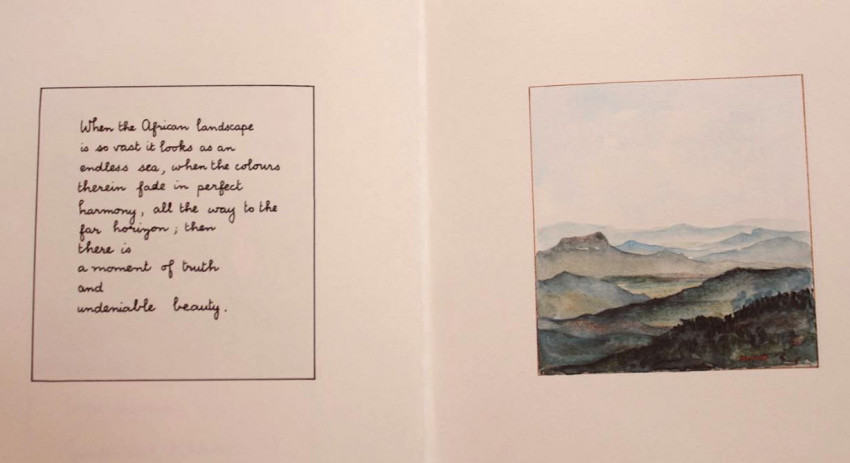 When the African landscape
is so vast it looks as an
endless sea, when the colours
therein fade in perfect
harmony, all the way to the
far horizon; then
there is
a moment of truth
and
undeniable beauty.